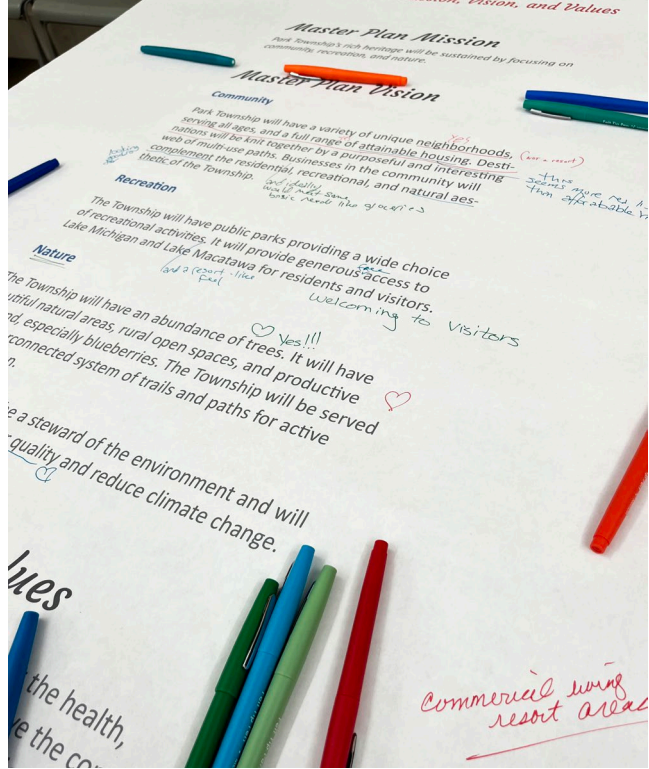 Vision, and Values
Master Plan Mission
Park Township's rich heritage will be sustained by focusing on
community, recreation, and nature.
Master Plan Vision
Community
Park Township will have a variety of unique neighborhoods,
yes
serving all ages, and a full range of attainable housing. Desti-
(not a resort)
nations will be knit together by a purposeful and interesting
this
web of multi-use paths. Businesses in the community will
seems more
than
complement the residential, recreational, and natural aes-
thetic of the Township.
and ideally
would meet some
basic needs like groceries
Recreation
The Township will have public parks providing a wide choice
of recreational activities. It will provide generous access to
free
Lake Michigan and Lake Macatawa for residents and visitors.
and a resort-like
feel
welcoming to visitors
Nature
The Township will have an abundance of trees. It will have
♡ Yes!!!
utiful natural areas, rural open spaces, and productive
nd, especially blueberries. The Township will be served
♡
rconnected system of trails and paths for active
n.
e a steward of the environment and will
quality and reduce climate change.
♡
lues
the health,
ve the
commercial
resort areas